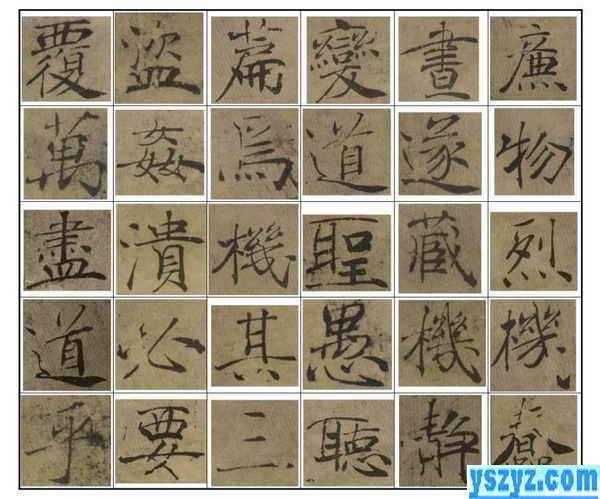 覆盜篇變晝廉
萬姦為道遂物
盡潰機聖藏烈
道必其愚機機
乎要三聽靜蠢
yszyz.com